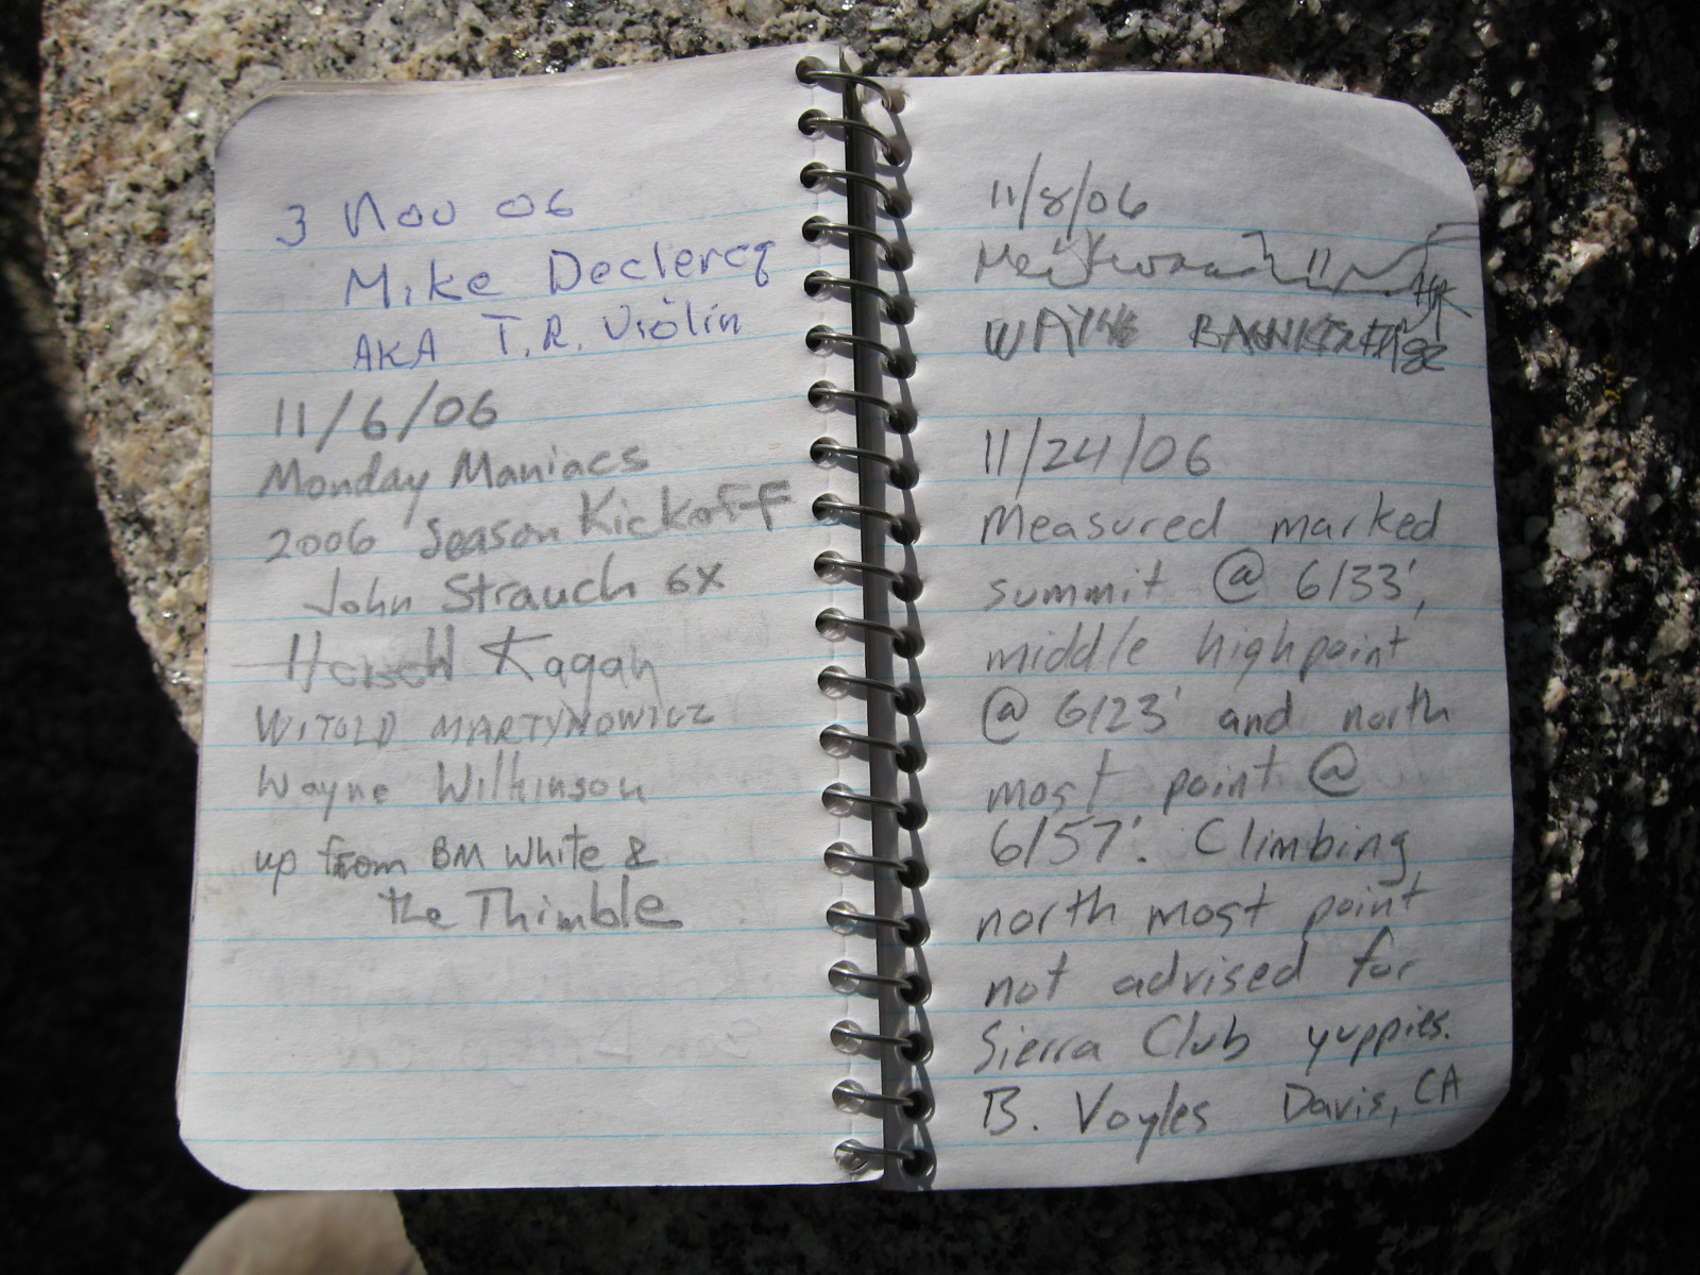 3 Nov 06
Mike Declercq
AKA T.R. Violin
11/6/06
Monday Maniacs
2006 Season Kickoff
John Strauch 6X
Kagan
WITOLD MARTYNOWICZ
Wayne Wilkinson
up from BM White &
the Thimble
11/8/06
11/24/06
Measured marked
summit @ 6133',
middle highpoint
@ 6123' and north
most point @
6157'. Climbing
north most point
not advised for
Sierra Club yuppies.
B. Voyles Davis, CA